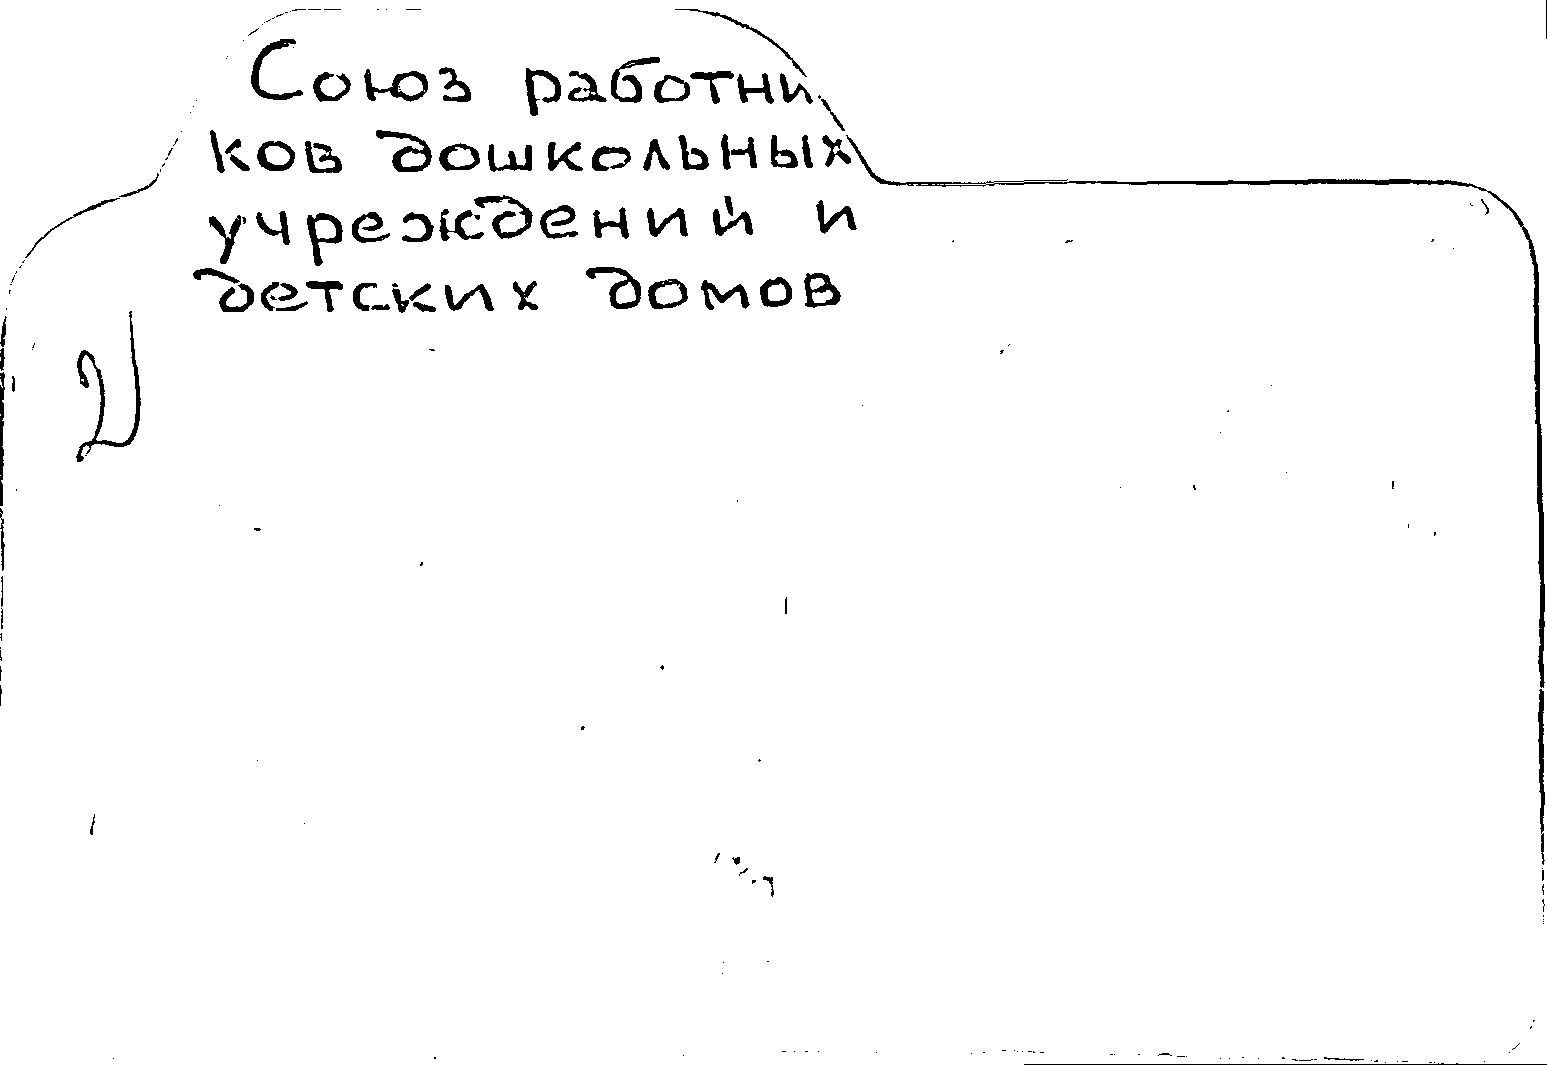 Союз работни
ков дошкольных
учреждений и
детских домов